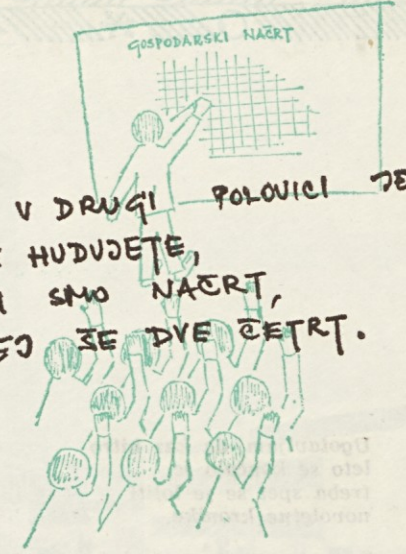 GOSPODARSKI NAČRT
V DRUGI POLOVICI JE
E HUDUJETE,
SMO NAČRT,
EJ ŠE DVE ČETRT.